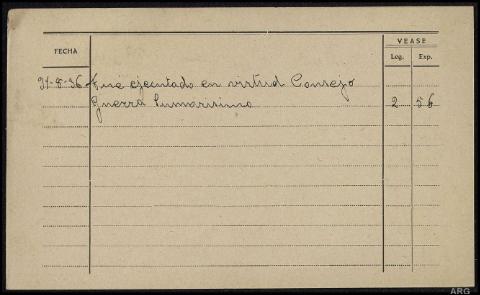 VEASE
FECHA
Leg. Exp.
31-8-36 Fue ejecutado en virtud Consejo
Guerra Sumarisimo 2 56
ARG